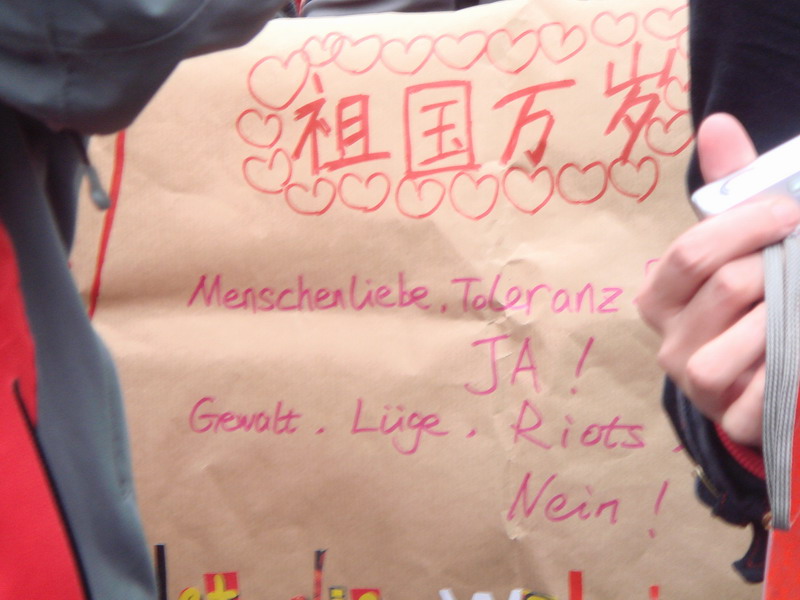 祖国万岁
Menschenliebe. Toleranz
JA!
Gewalt. Lüge. Riots
Nein!